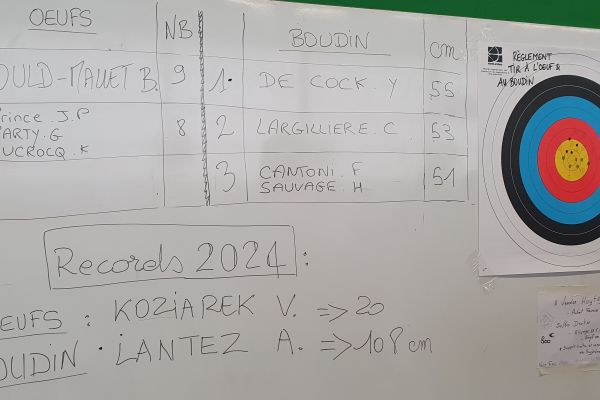 OEUFS NB BOUDIN cm
OULD-MALLET B. 9 1. DE COCK. Y 55
Prince. J.P
ARTY. G 8 2 LARGILLIERE. C 53
UCROCQ. K
3 CANTONI. F 51
SAUVAGE. H
Records 2024 :
OEUFS : KOZIAREK V. => 20
BOUDIN . LANTEZ A. => 108 cm
RÈGLEMENT
TIR À L'OEUF &
AU BOUDIN